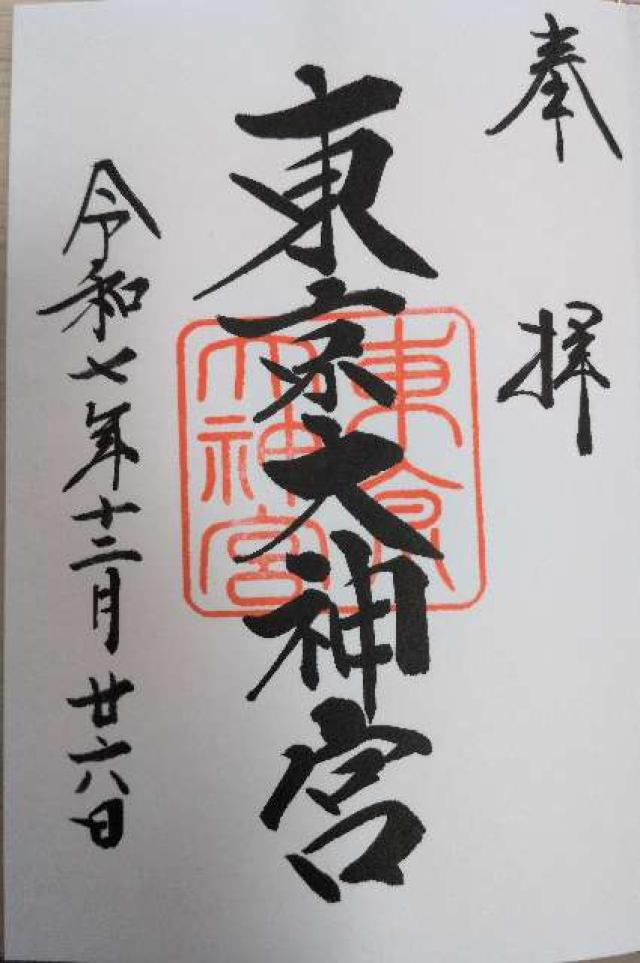 奉拝
東京大神宮
東京大神宮
令和七年十二月廿六日